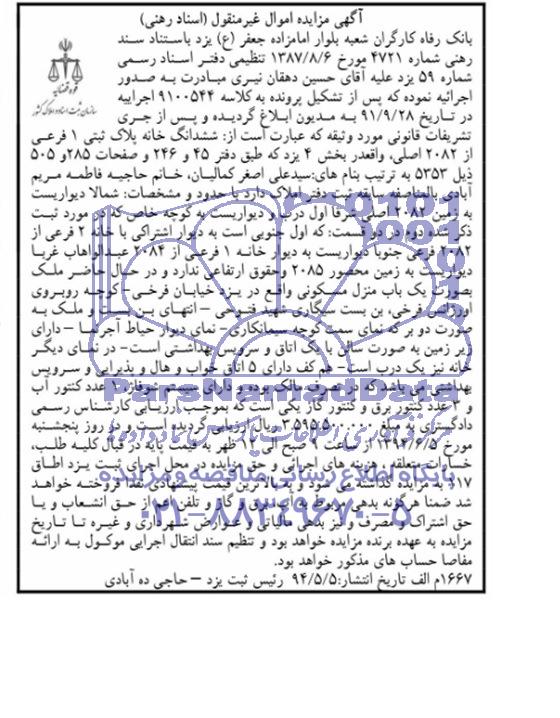 آگهی مزایده اموال غیرمنقول (اسناد رهنی)
بانک رفاه کارگران شعبه بلوار امامزاده جعفر (ع) یزد باستناد سند
رهنی شماره ۴۷۲۱ مورخ ۱۳۸۷/۸/۶ تنظیمی دفتر اسناد رسمی
شماره ۵۹ یزد علیه آقای حسین دهقان نیری مبادرت به صدور
اجرائیه نموده که پس از تشکیل پرونده به کلاسه ۹۱۰۰۵۴۴ اجراییه
در تاریخ ۹۱/۹/۲۸ به مدیون ابلاغ گردیده و پس از جری
قوه قضائیه
سازمان ثبت اسناد و املاک کشور
تشریفات قانونی مورد وثیقه که عبارت است از: ششدانگ خانه پلاک ثبتی ۱ فرعی
از ۲۰۸۲ اصلی، واقعدر بخش ۴ یزد که طبق دفتر ۴۵ و ۲۴۶ و صفحات ۲۸۵و ۵۰۵
ذیل ۵۳۵۳ به ترتیب بنام های:سیدعلی اصغر کمالیان، خانم حاجیه فاطمه مریم
آبادی بالمناصفه سابقه ثبت دفتر املاک دارد با حدود و مشخصات: شمالا دیواریست
به زمین ۲۰۸۲ اصلی شرقا اول درب و دیواریست به کوچه خاص که در مورد ثبت
ذکر شده دوم در دو قسمت: که اول جنوبی است به دیوار اشتراکی با خانه ۲ فرعی از
۲۰۸۲ فرعی جنوبا دیواریست به دیوار خانه ۱ فرعی از ۲۰۸۴ عبدالوهاب غربا
دیواریست به زمین محصور ۲۰۸۵ وحقوق ارتفاعی ندارد و در حال حاضر ملک
بصورت یک باب منزل مسکونی واقع در یزد خیابان فرخی- کوچه روبروی
اورژانس فرخی، بن بست سیگاری شهید فتوحی – انتهای بن بست و ملک به
صورت دو بر که نمای سمت کوچه سیمانکاری- نمای دیوار حیاط آجرنما – دارای
زیر زمین به صورت سالن با یک اتاق و سرویس بهداشتی است- در نمای دیگر
خانه نیز یک درب است- هم کف دارای ۵ اتاق خواب و هال و پذیرایی و سرویس
بهداشتی می باشد که در تصرف مالک بوده و دارای سیستم شوفاژ، ۱ عدد کنتور آب
و ۳ عدد کنتور برق و کنتور گاز یکی است که بموجب ارزیابی کارشناس رسمی
دادگستری به مبلغ ۳.۵۹۵.۵۰۰.۰۰۰ ریال ارزیابی گردیده است و در روز پنجشنبه
مورخ ۱۳۹۴/۶/۵ از ساعت ۹ صبح الی ۱۲ ظهر به قیمت پایه در قبال کلیه طلب،
خسارات متعلقه، هزینه های اجرائی و حق مزایده در محل اجرای ثبت یزد اطاق
۱۱۷ به مزایده گذاشته می شود و به بالاترین قیمت پیشنهادی نقدا فروخته خواهد
شد ضمنا هرگونه بدهی مربوط به آب، برق و گاز و تلفن اعم از حق انشعاب و یا
حق اشتراک و مصرف و نیز بدهی مالیاتی و عوارض شهرداری و غیره تا تاریخ
مزایده به عهده برنده مزایده خواهد بود و تنظیم سند انتقال اجرایی موکول به ارائه
مفاصا حساب های مذکور خواهد بود.
۱۶۶۷م الف تاریخ انتشار:۹۴/۵/۵ رئیس ثبت یزد – حاجی ده آبادی
ParsNamadData
پایگاه اطلاع رسانی مناقصه و مزایده
۰۲۱-۸۸۳۴۹۶۷۰-۵